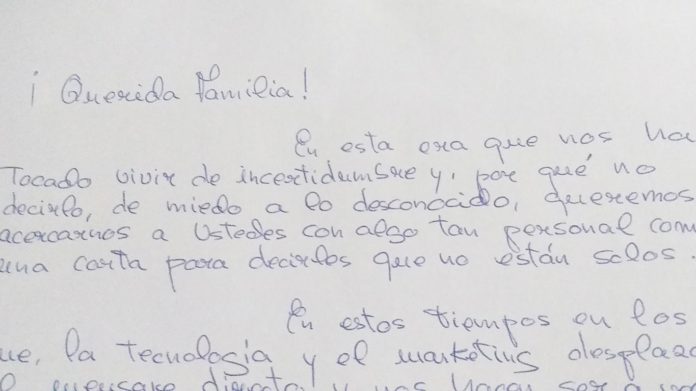 ¡Querida familia!
En esta era que nos ha
Tocado vivir de incertidumbre y, por qué no
decirlo, de miedo a lo desconocido, queremos
acercarnos a Ustedes con algo tan personal com
una carta para decirles que no están solos.
En estos tiempos en los
ue, la Tecnología y el marketing desplaza
mensaje directo